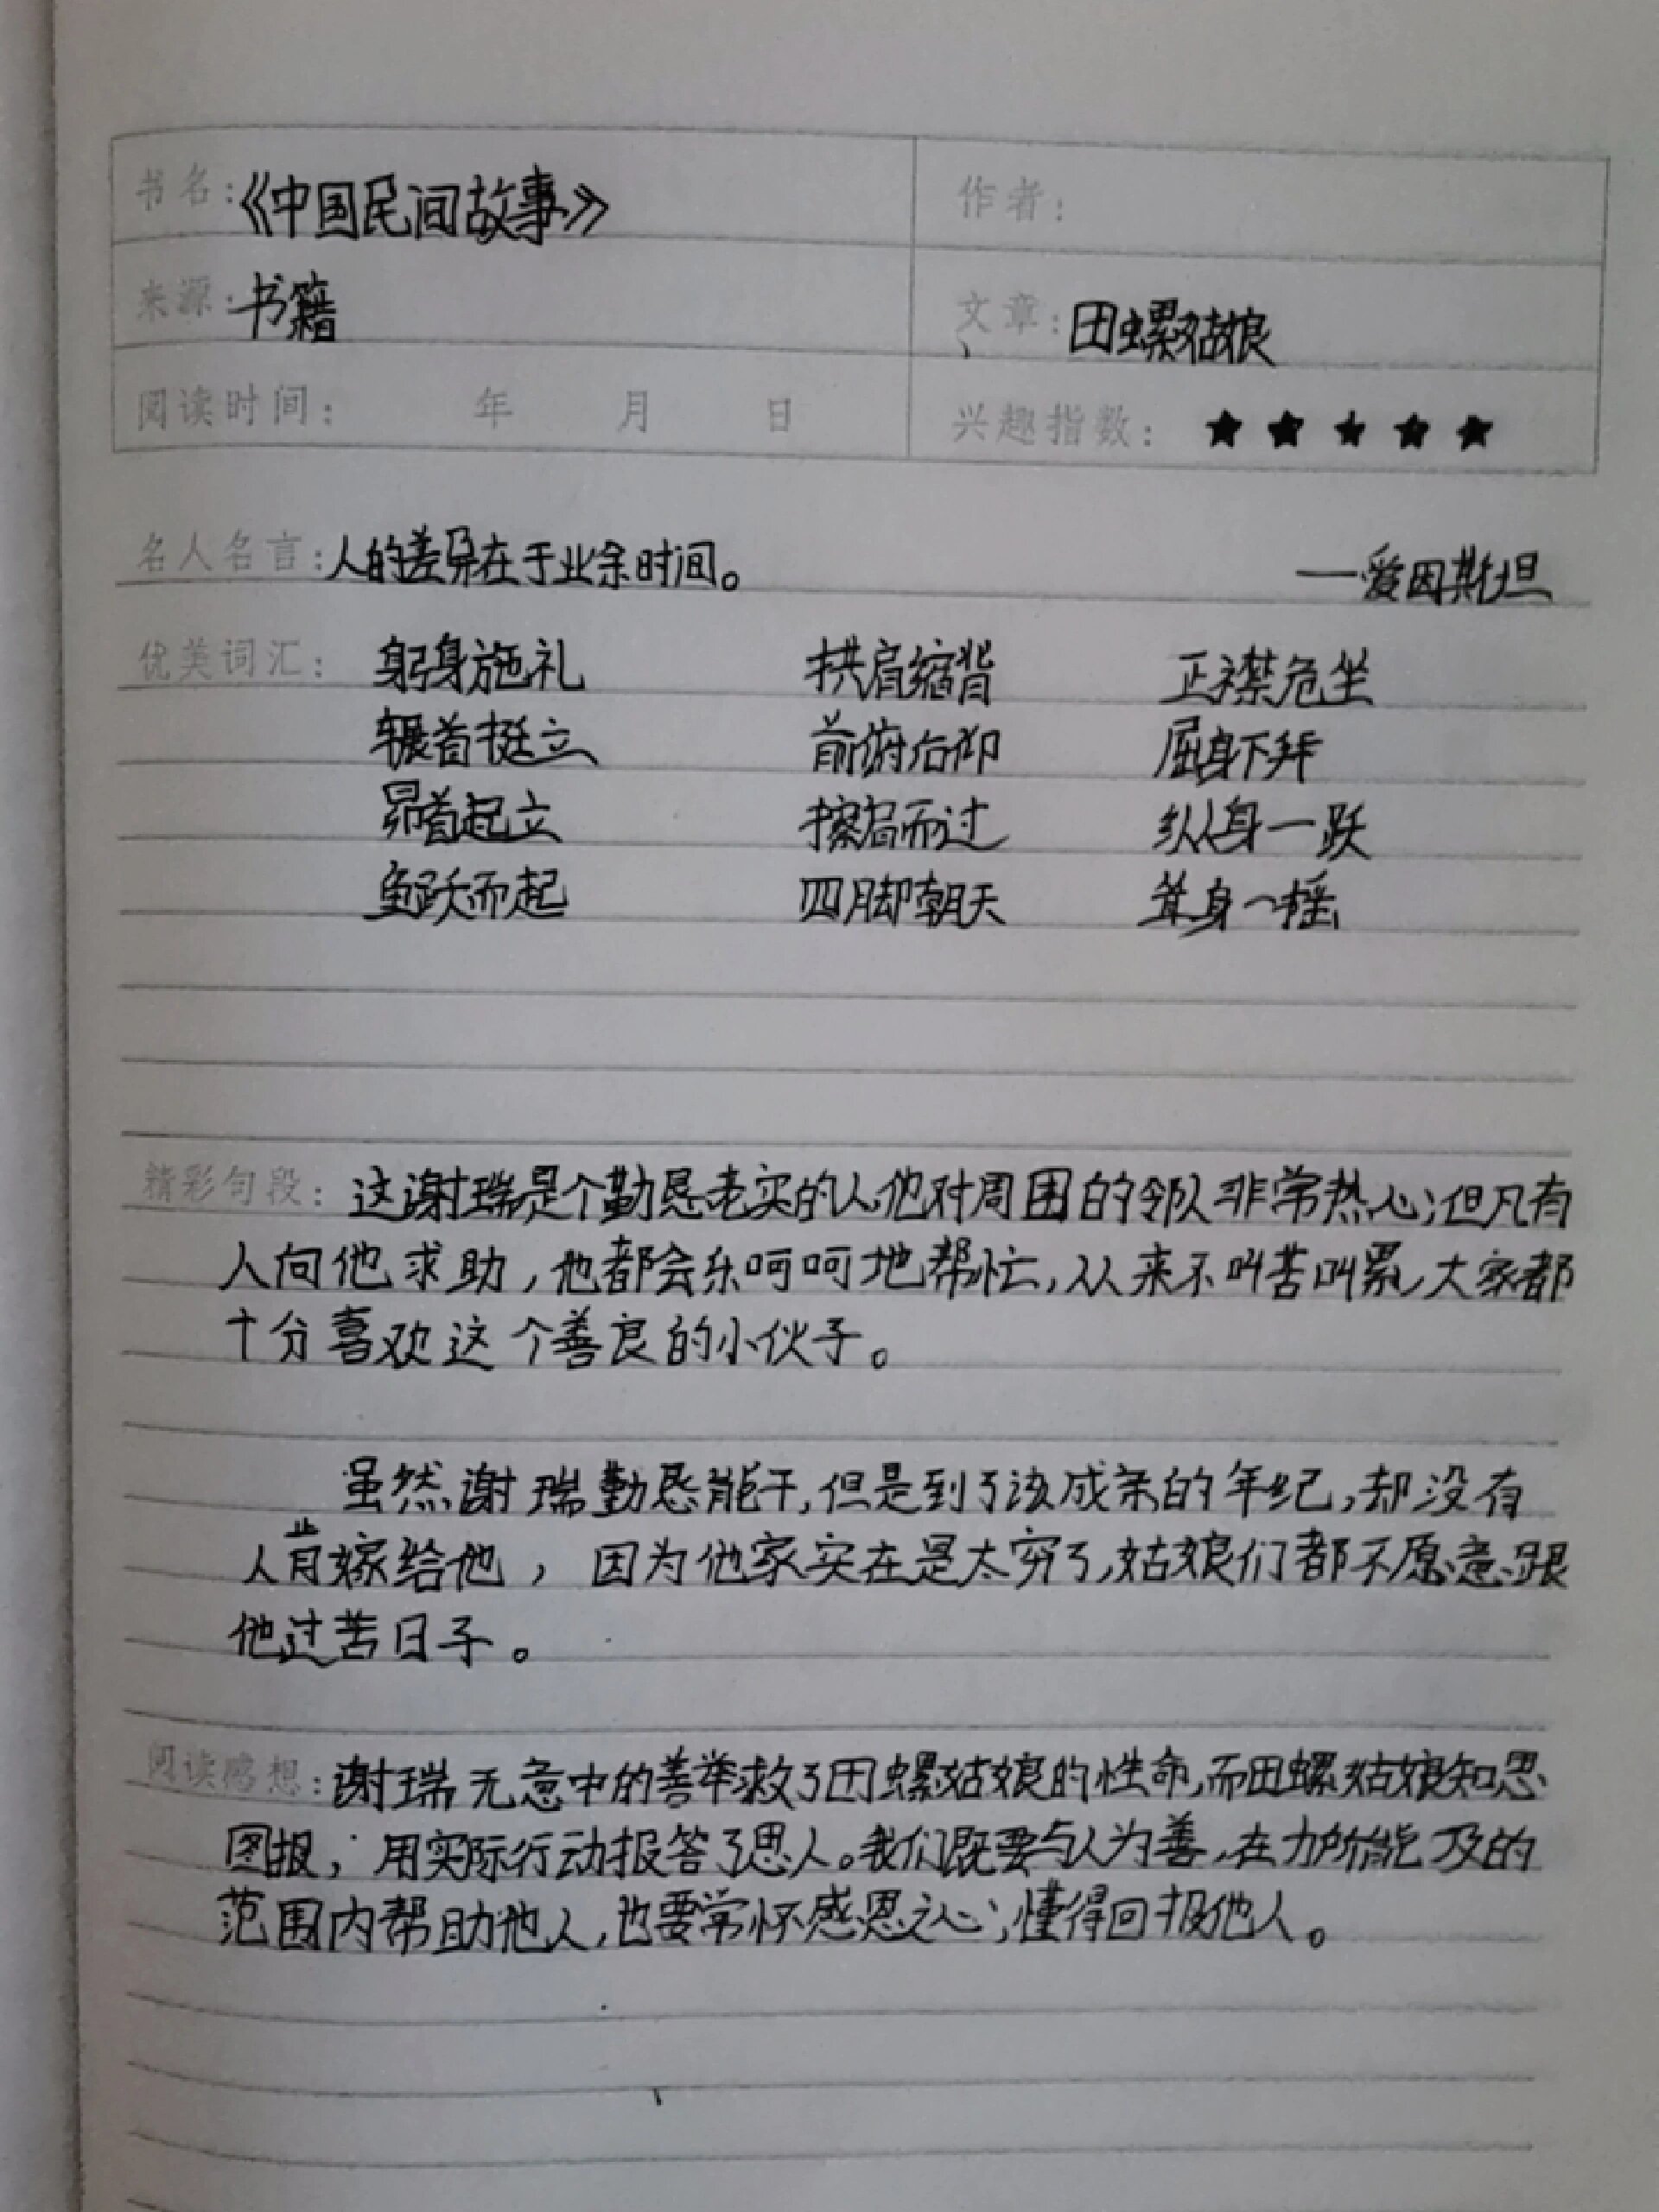 书名:《中国民间故事》 作者:
来源:书籍 文章:田螺姑娘
阅读时间: 年 月 日 兴趣指数: ★ ★ ★ ★ ★
名人名言:人的差异在于业余时间。 ——爱因斯坦
优美词汇: 躬身施礼 拱肩缩背 正襟危坐
首挺立 前俯后仰 屈身下拜
昂首起立 擦肩而过 纵身一跃
鱼跃而起 四脚朝天 耸身一摇
精彩句段: 这谢瑞是个勤恳老实的人,他对周围的邻队非常热心;但凡有
人向他求助,他都会乐呵呵地帮忙,从来不叫苦叫累,大家都
十分喜欢这个善良的小伙子。
虽然谢瑞勤恳能干,但是到了该成亲的年纪,却没有
人肯嫁给他,因为他家实在是太穷了,姑娘们都不愿意跟
他过苦日子。
阅读感想:谢瑞无意中的善举救了田螺姑娘的性命,而田螺姑娘知恩
图报,用实际行动报答了恩人。我们既要与人为善,在力所能及的
范围内帮助他人,也要常怀感恩之心,懂得回报他人。